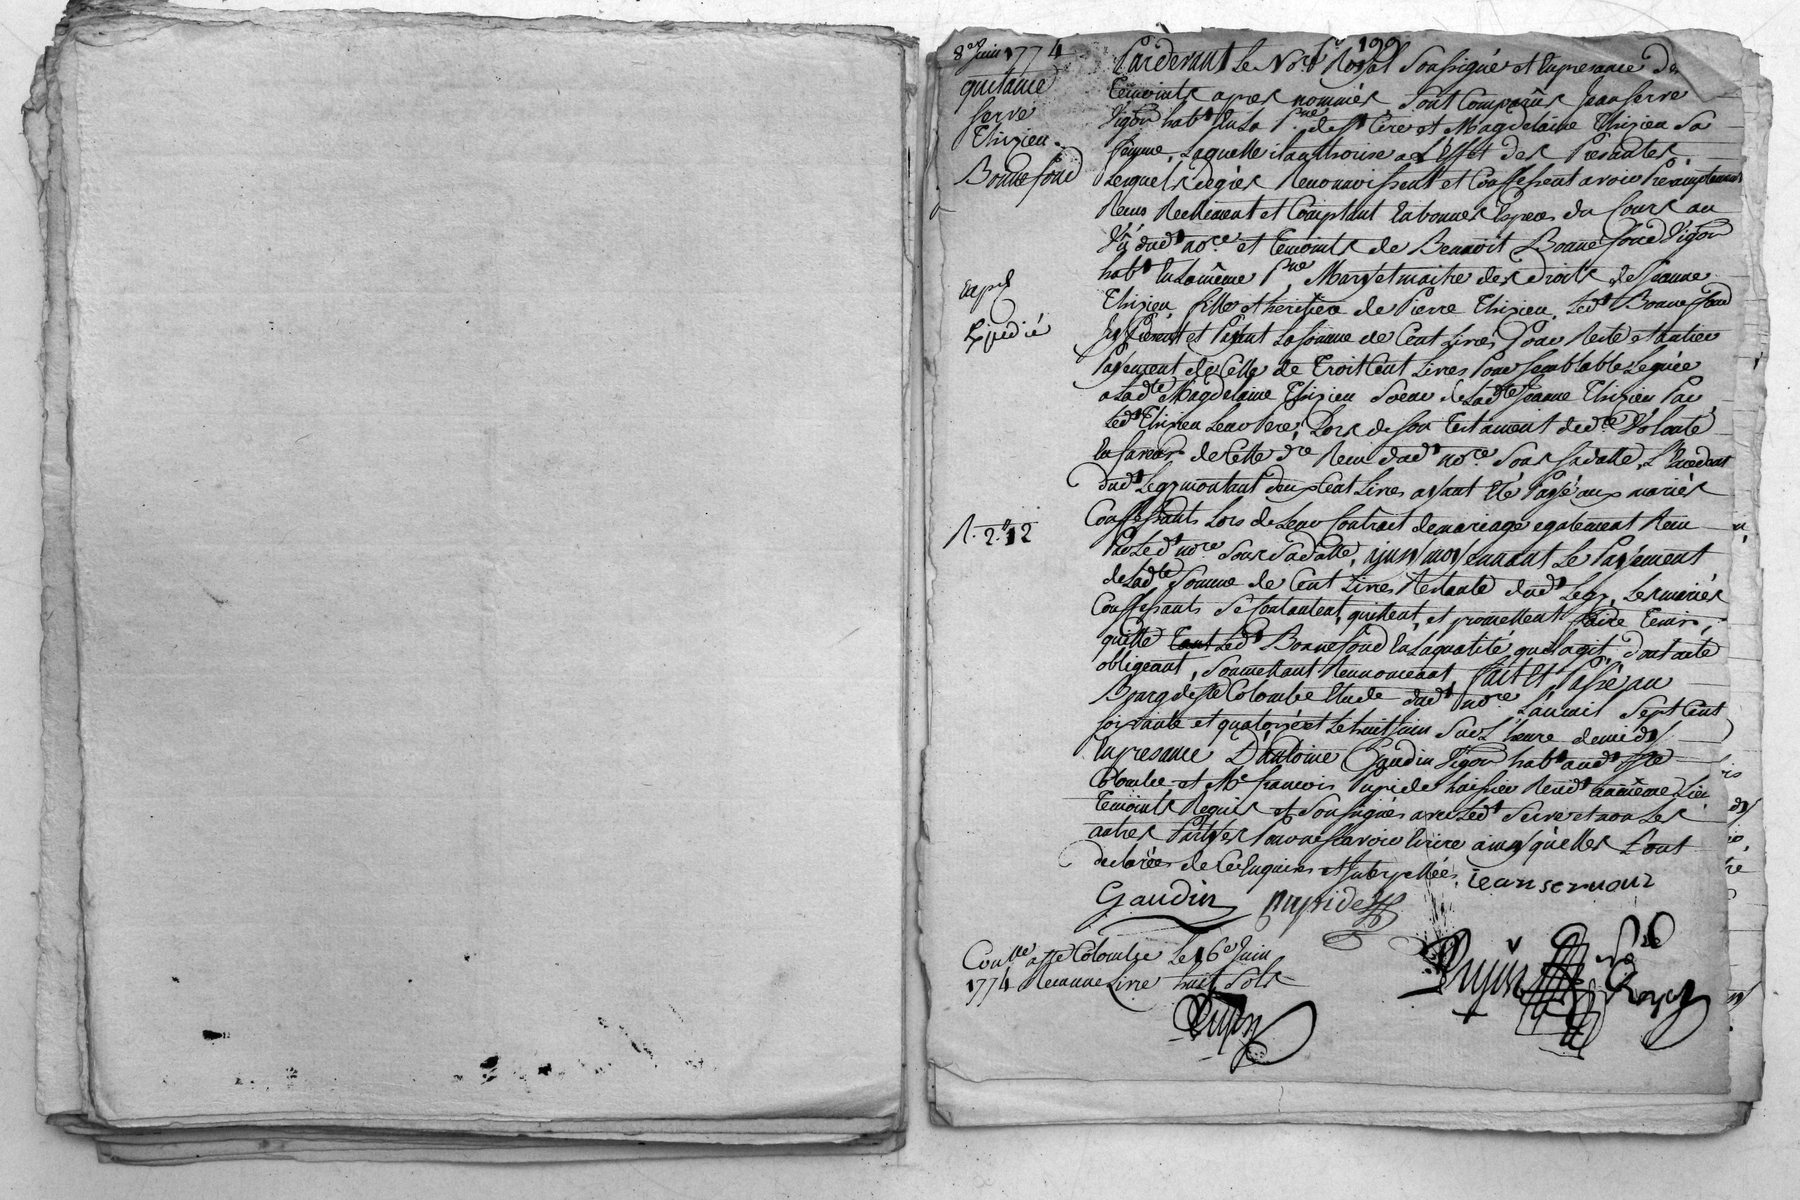 8e Juin 1774
quittance
serve
Thizien
Bonnefond
Expédié
R. 2. 12
199
Pardevant Le Nore Royal Soussigné et Enpresance des
Temoints apres nommés, Sont Comparûs Jean serve
Vigon habt En La Pne de st Cire et Magdelaine Thizien Sa
femme, Laquelle il authorise a L'Effet des Presantes
Lesquels degrés Reconnoissent et Confessent avoir Presantement
Recus Reellement et Comptant En bonnes Especes du Cours au
Vû dudt nore et Temoints de Bennoit Bonnefond Vigon
habt En La même Pne, Mary et maitre des droits de Jeanne
Thizien fille et heritiere de Pierre Thizien, Ledt Bonnefond
Icy Present et Paÿant La somme de Cent Livres Pour Reste et Entier
Payement de Celle de Trois Cent Livres Pour semblable Leguée
a Ladte Magdelaine Thizien Soeur de Ladte Jeanne Thizien Par
Ledt Thizien Leur Pere, Lors de son Testament de dre Volonté
En faveur de Cette dre Recu dudt nore Sous sa datte, L'Excedant
dudt Legz montant deux Cent Livres ayant Eté Payé aux mariés
Confessants Lors de Leur Contract de mariage egalement Recu
Par Ledt nore Sous Sa datte, ainsy moyennant Le Payement
de Ladte Somme de Cent Livres Restante dudt Legz, Les mariés
Confessants Se Contentent, quittent, et promettent faire Tenir
quitte Ledt Bonnefond En La qualité qu'il agit, dont acte
obligeant, Soumettant Renoncant, fait Et Passé au
Bourg de ste Colombe Etude dudt nore L'an mil Sept Cent
soixante et quatorze et Le huit Juin Sur L'heure de midy
En presance D'Antoine Gaudin Vigon habt audt ste
Colombe et Me francois Pupide huissier Residt au même Lieu
Temoints Requis et Soussignés avec Ledt Serve et non Les
autres Parties Pour ne scavoir Ecrire ainsy qu'elles L'ont
declarées de Ce Enquises et Interpellées
jean serve
Gaudin
pupide
Conllé a ste Colombe Le 16e Juin
1774 Recu une Livre huit Sols